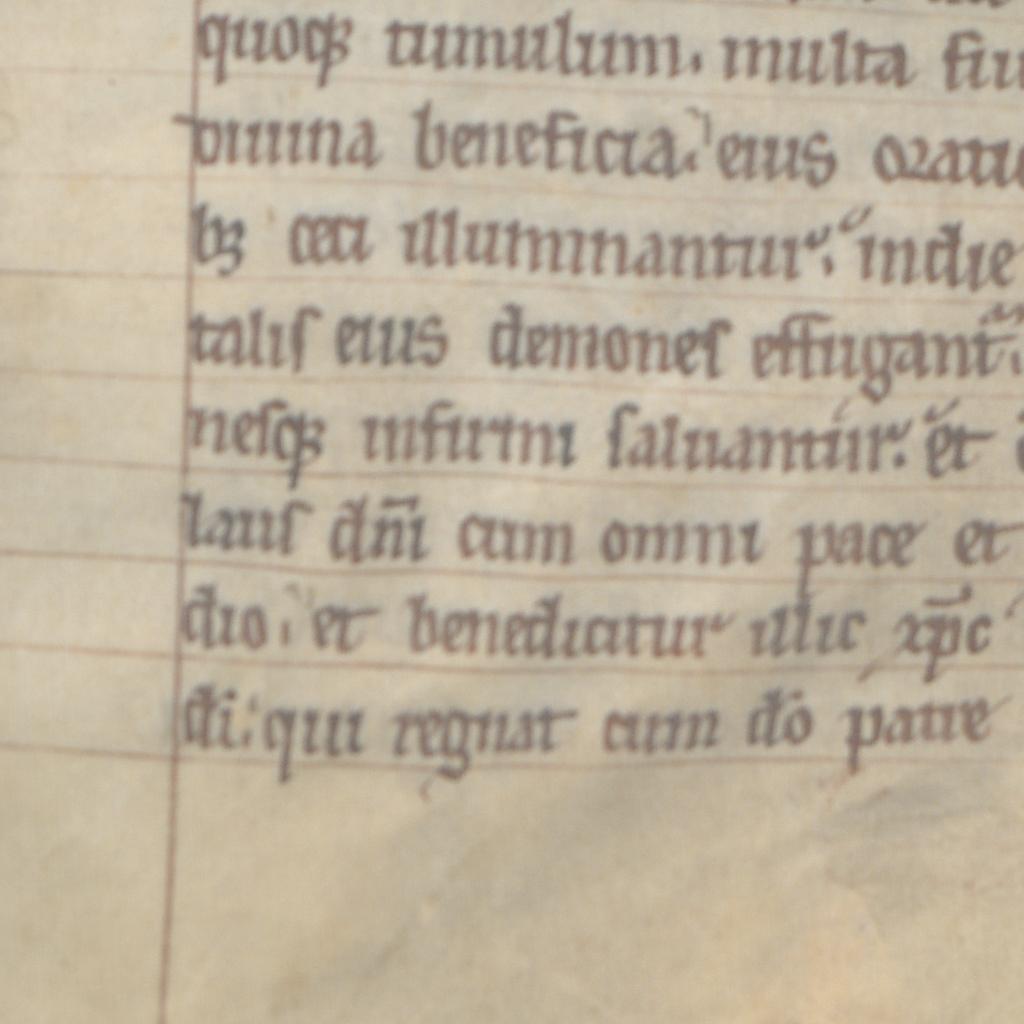 quoqꝫ tumulum. multa fiu
diuina beneficia. eius oratio
bꝫ ceci illuminantur. in die
talis eius demones effugant̄.
nesqꝫ infirmi saluantur. et
laus dn̄i cum omni pace et
dio. et benedicitur illic xp̄c
di. qui regnat cum dō patre